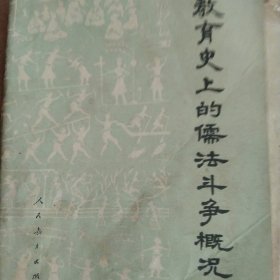 教育史上的儒法斗争概况
人民教育出版